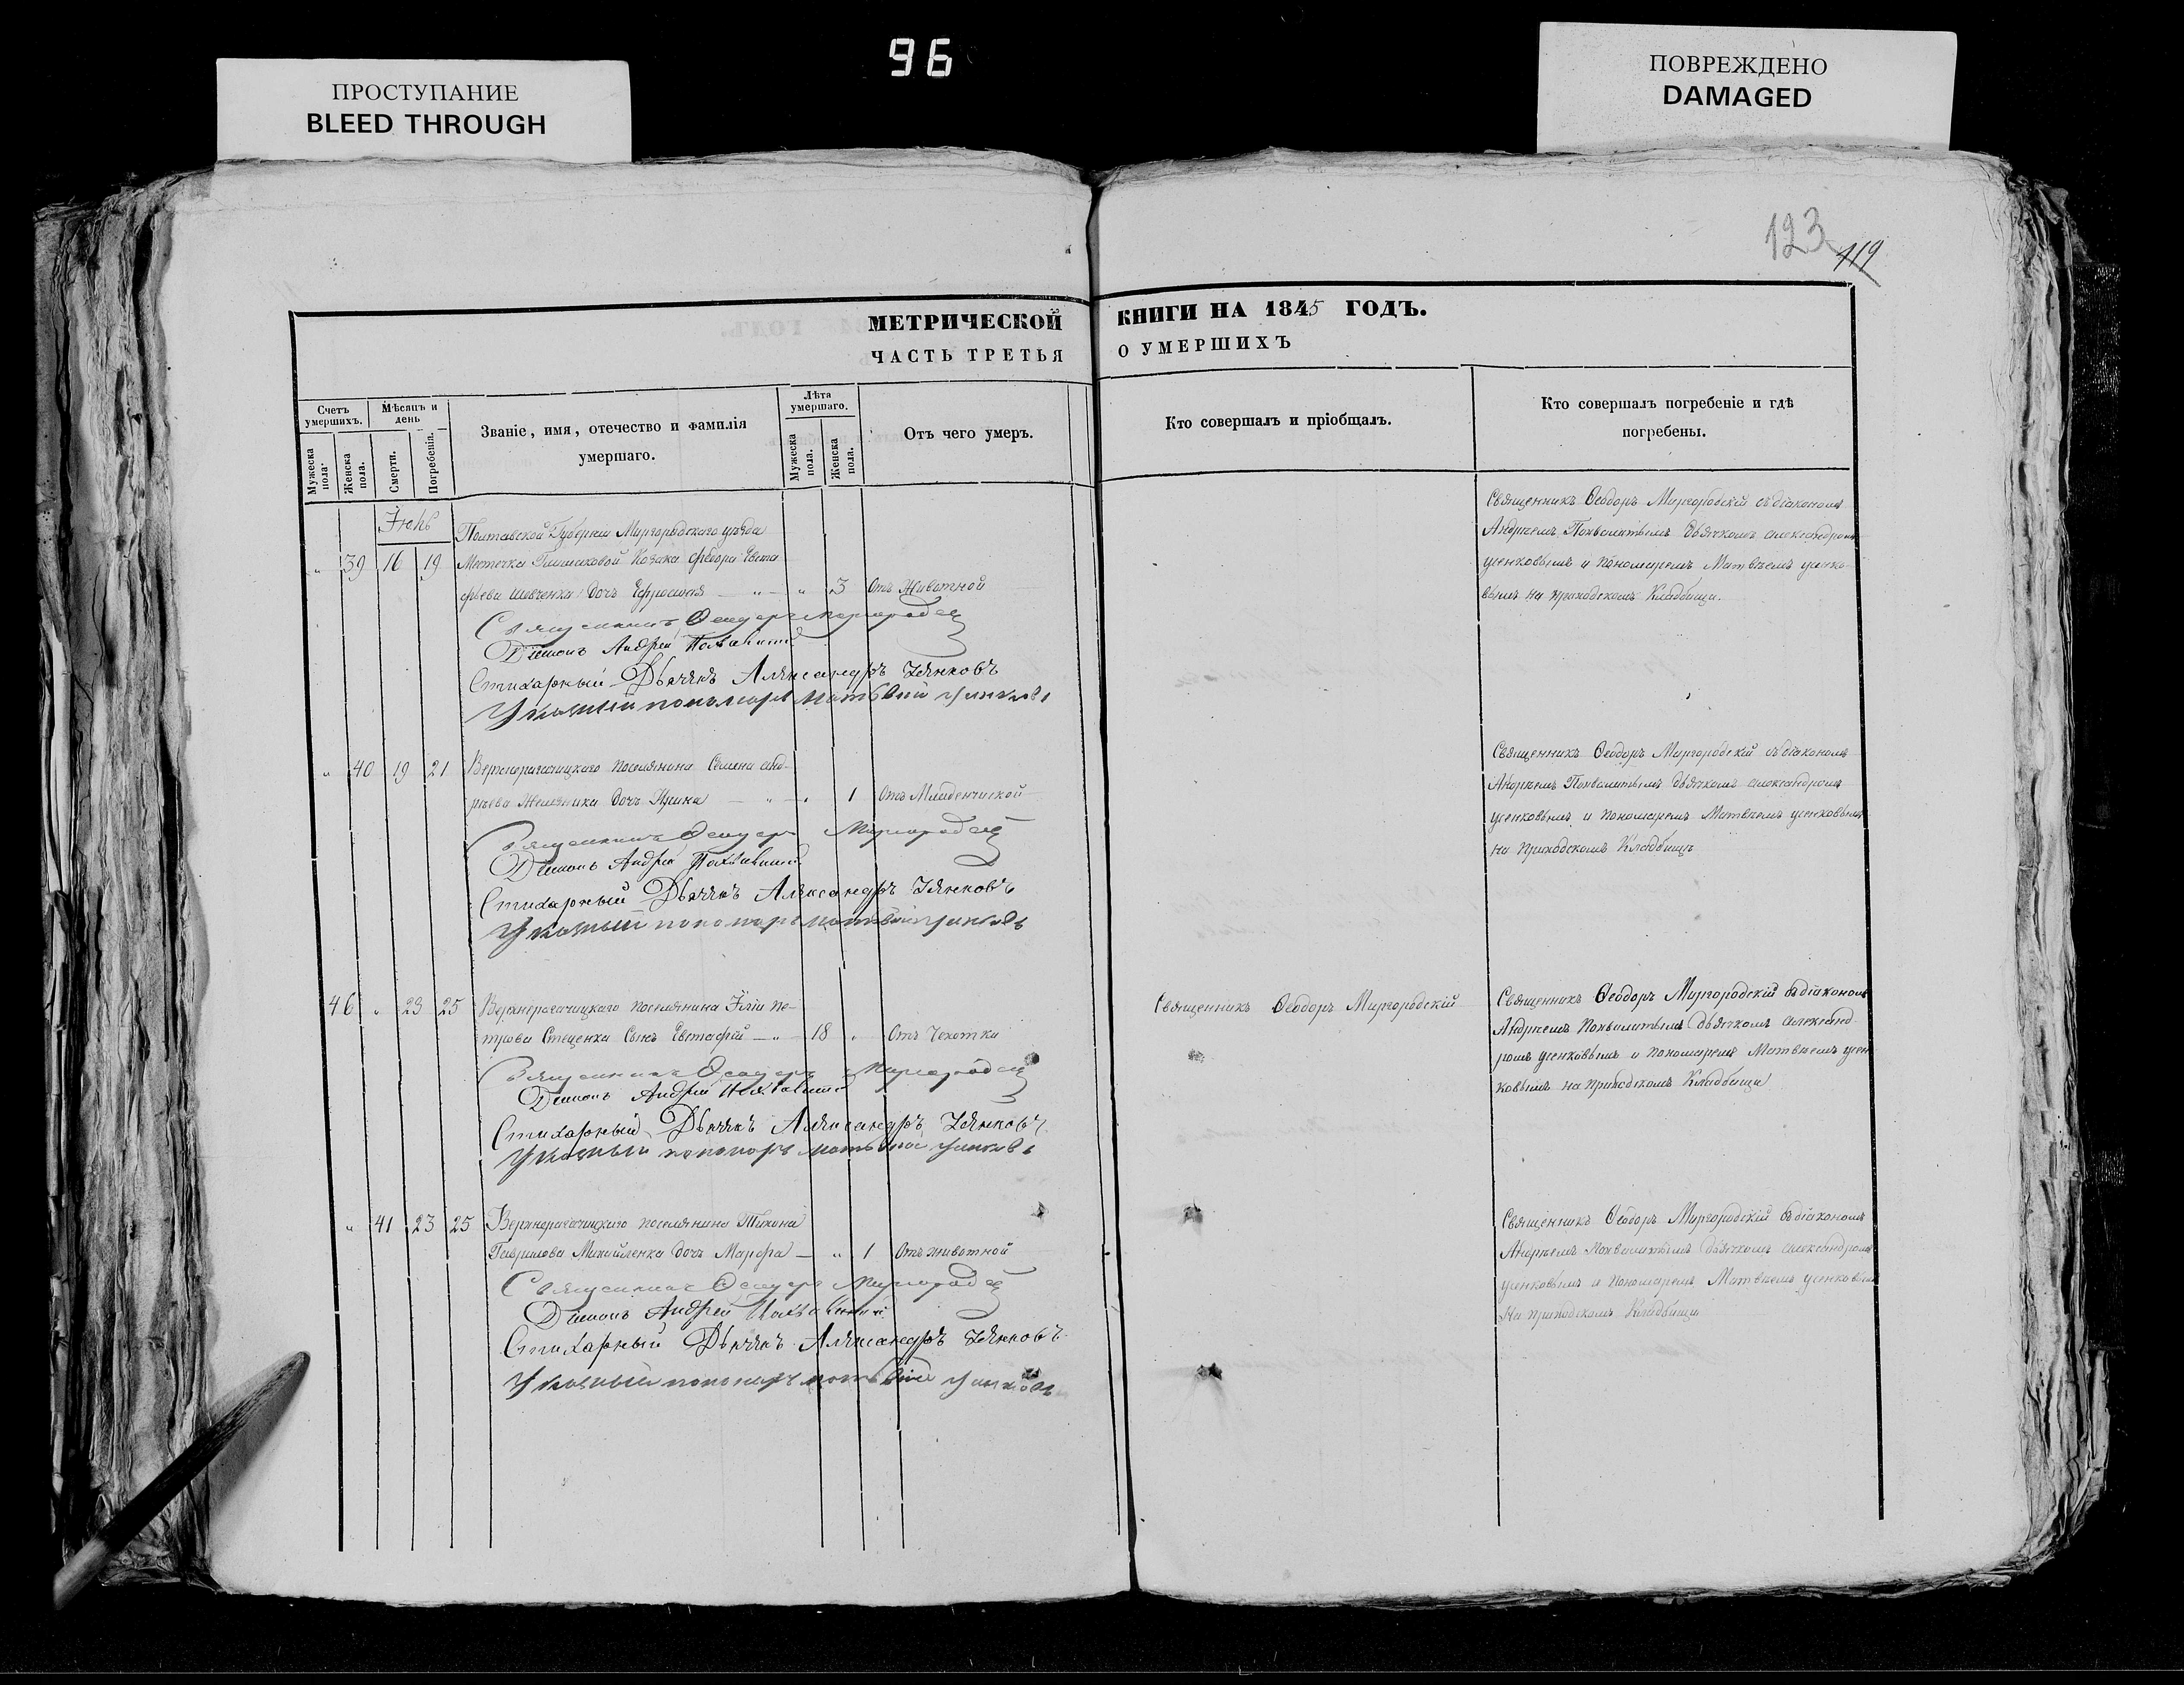 96
ПРОСТУПАНИЕ
BLEED THROUGH
ПОВРЕЖДЕНО
DAMAGED
123
119
МЕТРИЧЕСКОЙ
КНИГИ НА 1845 ГОДЪ.
ЧАСТЬ ТРЕТЬЯ
О УМЕРШИХЪ
Счетъ умершихъ.
Мужеска пола.
Женска пола.
Мѣсяцъ и день
Смерти.
Погребенія.
Званіе, имя, отечество и фамилія
умершаго.
Лѣта умершаго.
Мужеска пола.
Женска пола.
Отъ чего умеръ.
Кто совершалъ и пріобщалъ.
Кто совершалъ погребеніе и гдѣ
погребены.
Полтавской Губерніи Миргородского уѣзда
" 39 16 19 Местечка Козака Федора Евста
фіева Шевченка дочь Ефросинія — " — " 3 Отъ Животной
Священникъ Ѳеодоръ Миргородскій
Діаконъ Андрей Похвалитый
Стихарный Дьячекъ Александръ Уенковъ
Указный пономарь Матвѣй Уенковъ
Священникъ Ѳеодоръ Миргородскій съ діакономъ
Андреемъ Похвалитымъ дьячкомъ Александромъ
уенковымъ и пономаремъ Матвѣемъ уенко-
вымъ на приходскомъ Кладбищи.
" 40 19 21 Верхнерогачицкаго поселянина Семена Анд-
рѣева дочь Ирина — " — " 1 Отъ Младенчиской
Священникъ Ѳеодоръ Миргородскій
Діаконъ Андрей Похвалитый
Стихарный Дьячекъ Александръ Уенковъ
Указный пономарь Матвѣй Уенковъ
Священникъ Ѳеодоръ Миргородскій съ діакономъ
Андреемъ Похвалитымъ дьячкомъ Александромъ
уенковымъ и пономаремъ Матвѣемъ уенковымъ
на приходскомъ Кладбищи
46 " 23 25 Верхнерогачицкаго поселянина Іліи Пе-
трова Стеценка Сынъ Евстафій — " — 18 " Отъ Чахотки
Священникъ Ѳеодоръ Миргородскій
Діаконъ Андрей Похвалитый
Стихарный Дьячекъ Александръ Уенковъ
Указный пономарь Матвѣй Уенковъ
Священникъ Ѳеодоръ Миргородскій
Священникъ Ѳеодоръ Миргородскій съ діакономъ
Андреемъ Похвалитымъ дьячкомъ Александ-
ромъ уенковымъ и пономаремъ Матвѣемъ уен
ковымъ на приходскомъ Кладбищи
" 41 23 25 Верхнерогачицкаго поселянина Тихона
Гаврилова Михайленка дочь Марфа — " 1 Отъ животной
Священникъ Ѳеодоръ Миргородскій
Діаконъ Андрей Похвалитый
Стихарный Дьячекъ Александръ Уенковъ
Указный пономарь Матвѣй Уенковъ
Священникъ Ѳеодоръ Миргородскій съ діакономъ
Андреемъ Похвалитымъ дьячкомъ Александромъ
уенковымъ и пономаремъ Матвѣемъ уенковымъ
На приходскомъ Кладбищи